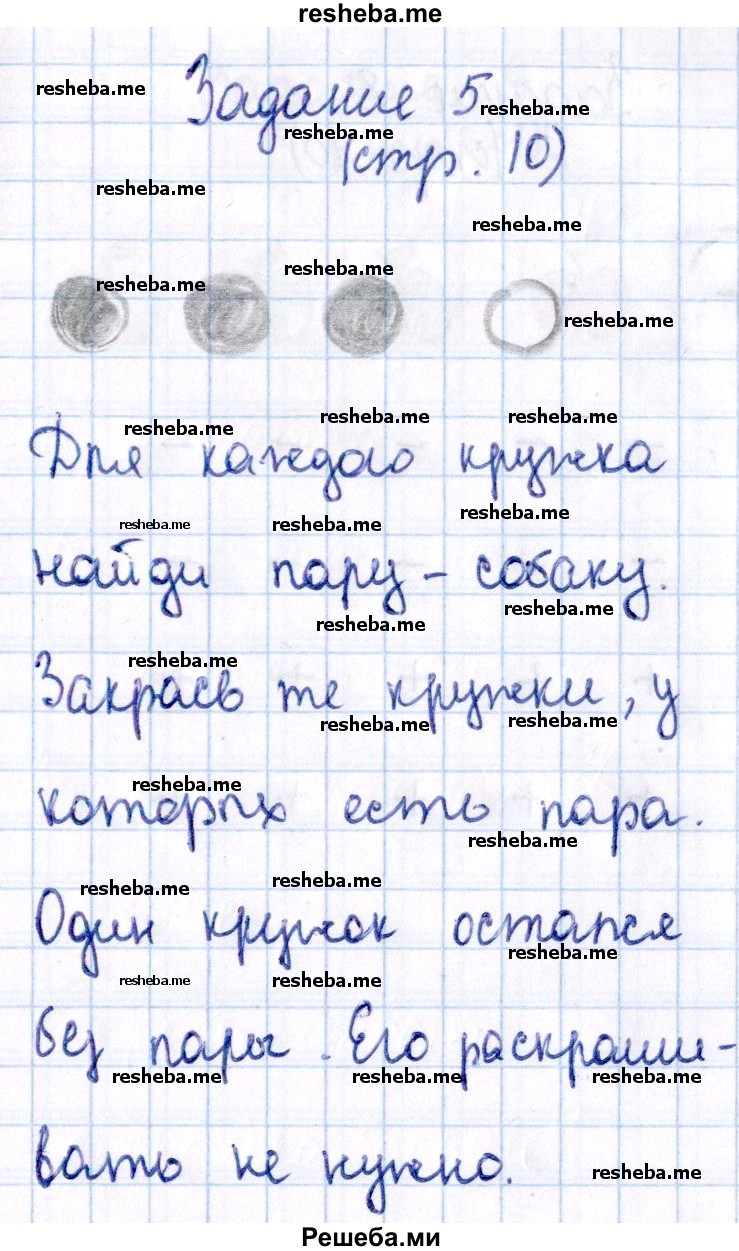 resheba.me
resheba.me
Задание 5
resheba.me
resheba.me
(стр. 10)
resheba.me
resheba.me
resheba.me
resheba.me
resheba.me
resheba.me
resheba.me
resheba.me
Для каждого кружка
resheba.me
resheba.me
resheba.me
найди пару – собаку.
resheba.me
resheba.me
resheba.me
Закрась те кружки, у
resheba.me
resheba.me
resheba.me
которых есть пара.
resheba.me
resheba.me
resheba.me
Один кружок остался
resheba.me
resheba.me
resheba.me
без пары. Его раскраши-
resheba.me
resheba.me
resheba.me
вать не нужно.
resheba.me
Решеба.ми